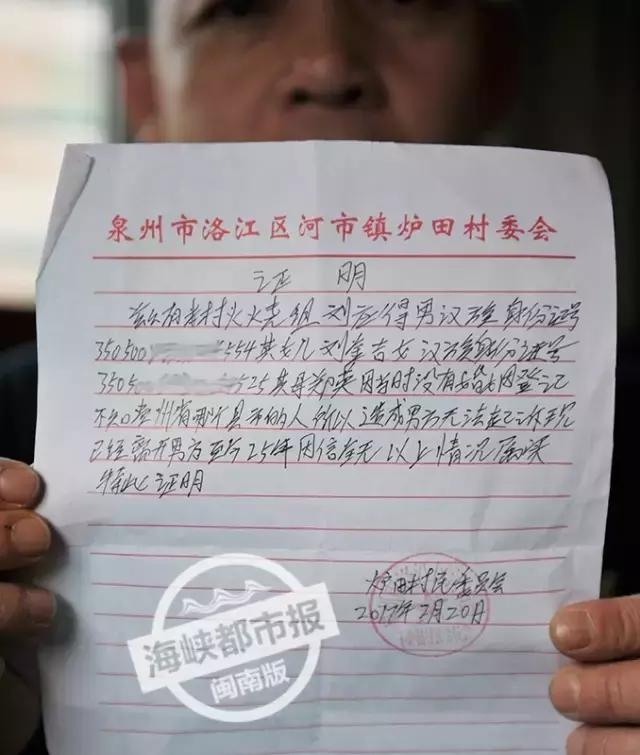 泉州市洛江区河市镇炉田村委会
证 明
兹有本村火烧组 刘应得男汉族身份证号
350500 554其女儿刘 吉女汉族身份证号
3505 525其母郑英因当时没有结婚登记
不知贵州省哪个县市的人所以造成男方无法
已经离开男方至今25年因信全无以上情况属实
特此证明
炉田村民委员会
2017年2月20日
海峡都市报
闽南版